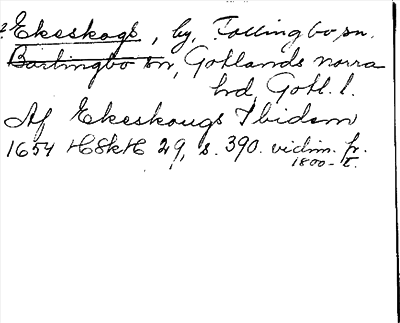 Ekeskogs, by, Follingbo sn.
Barlingbo sn, Gotlands norra
hrd, Gotl. l.
Af Ekeskougs Ibidem
1654 HSkH 29, s. 390. vidim. fr.
1800-t.